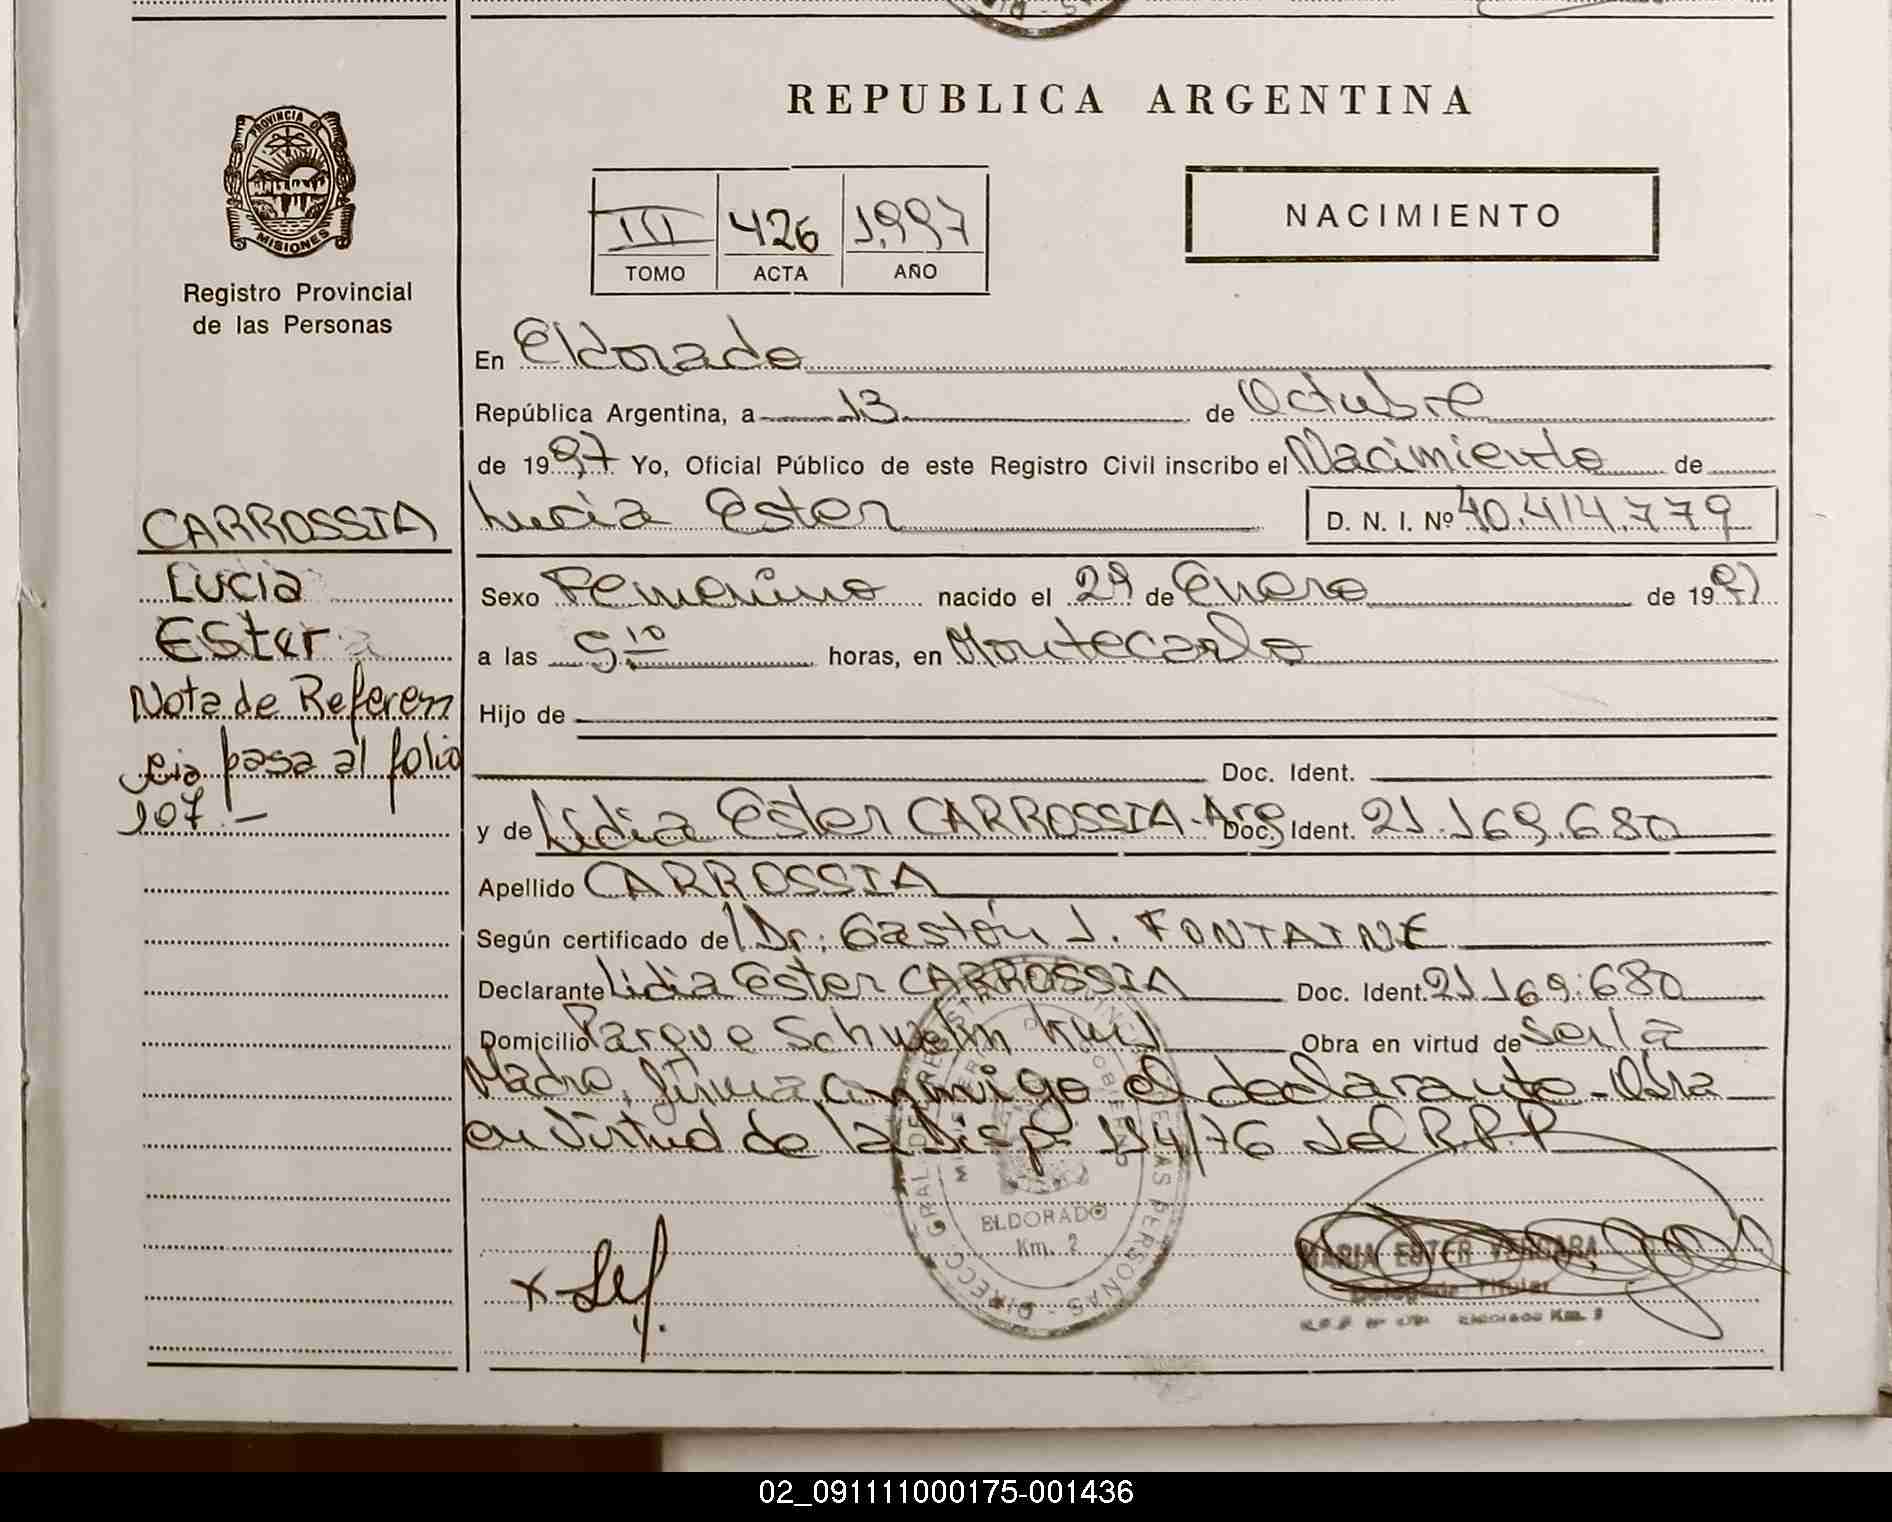 REPUBLICA ARGENTINA
PROVINCIA DE
MISIONES
Registro Provincial
de las Personas
III 426 1.997
TOMO ACTA AÑO
NACIMIENTO
En Eldorado
República Argentina, a 13 de Octubre
de 1997 Yo, Oficial Público de este Registro Civil inscribo el Nacimiento de
Lucia Ester D. N. I. Nº 40.414.779
CARROSSIA
Lucia
Ester
Nota de Referen
cia pasa al folio
107.-
Sexo Femenino nacido el 29 de Enero de 1997
a las 9 10 horas, en Montecarlo
Hijo de
Doc. Ident.
y de Lidia Ester CARROSSIA.Arg Doc. Ident. 21.169.680
Apellido CARROSSIA
Según certificado del Dr: Gastón J. FONTAINE
Declarante Lidia Ester CARROSSIA Doc. Ident. 21.169.680
Domicilio Parque Schwelm Obra en virtud de ser la
Madre, firma conmigo el declarante-Obra
en virtud de la Disp. 114/76 del R.P.P
ELDORADO
Km. 2
DIRECC. GRAL. DE REGISTRO PROVINC. DE LAS PERSONAS
MARIA ESTER VERGARA
Delegada Titular
02_091111000175-001436